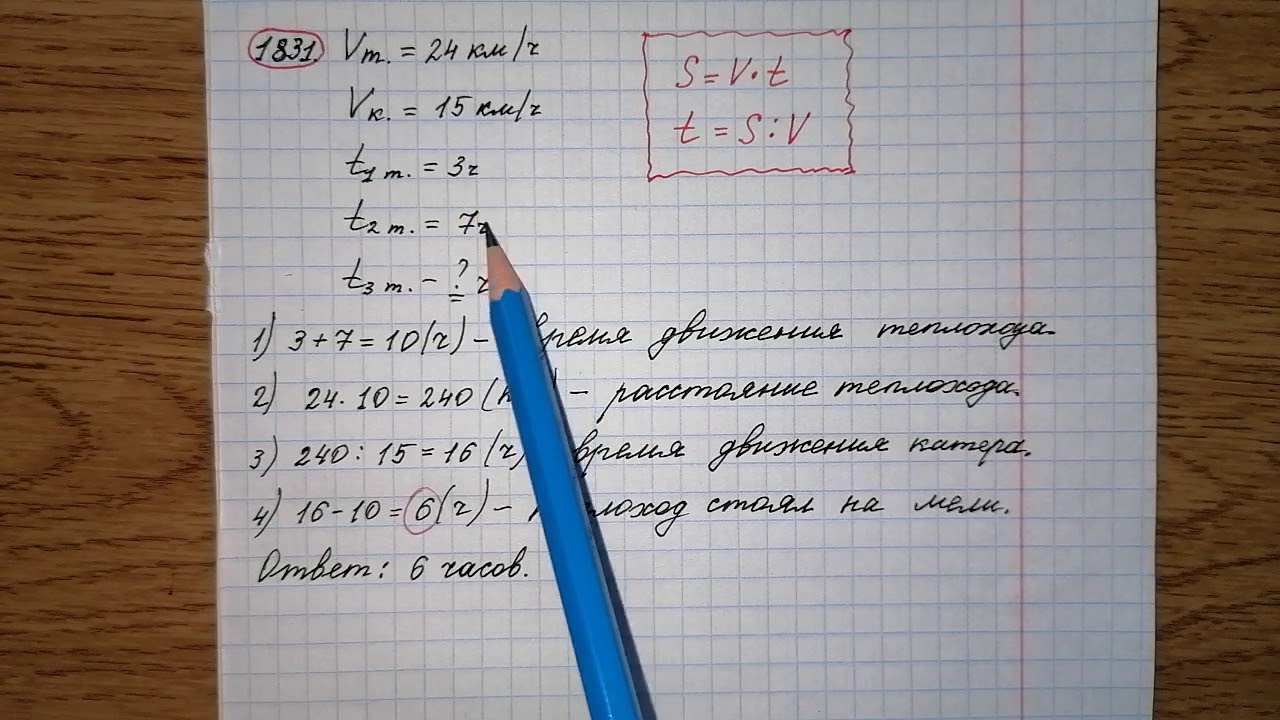 1831. Vт. = 24 км/ч
Vк. = 15 км/ч
t1 т. = 3ч
t2 т. = 7ч
t3 т. - ? ч
S = V·t
t = S:V
1) 3+7=10(ч) - время движения теплохода.
2) 24·10=240 (км) - расстояние теплохода.
3) 240:15=16(ч) время движения катера.
4) 16-10=6(ч) - теплоход стоял на мели.
Ответ: 6 часов.